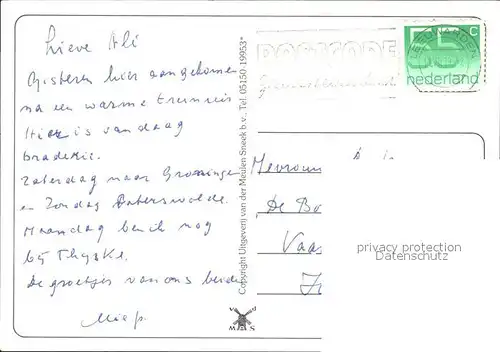 Lieve Ali
Gisteren hier aangekomen
na een warme treinreis
Hier is vandaag
braderie.
Zaterdag naar Groningen
en Zondag Paterswolde.
Maandag ben ik nog
bij Thyske.
de groetjes van ons beide
Miep
Copyright Uitgeverij van der Meulen Sneek b.v., Tel. 05150-19953*
MAS
POSTCODE
LEEUWARDEN
55 c
nederland
Mevrouw
De Bo
Vaa
privacy protection
Datenschutz